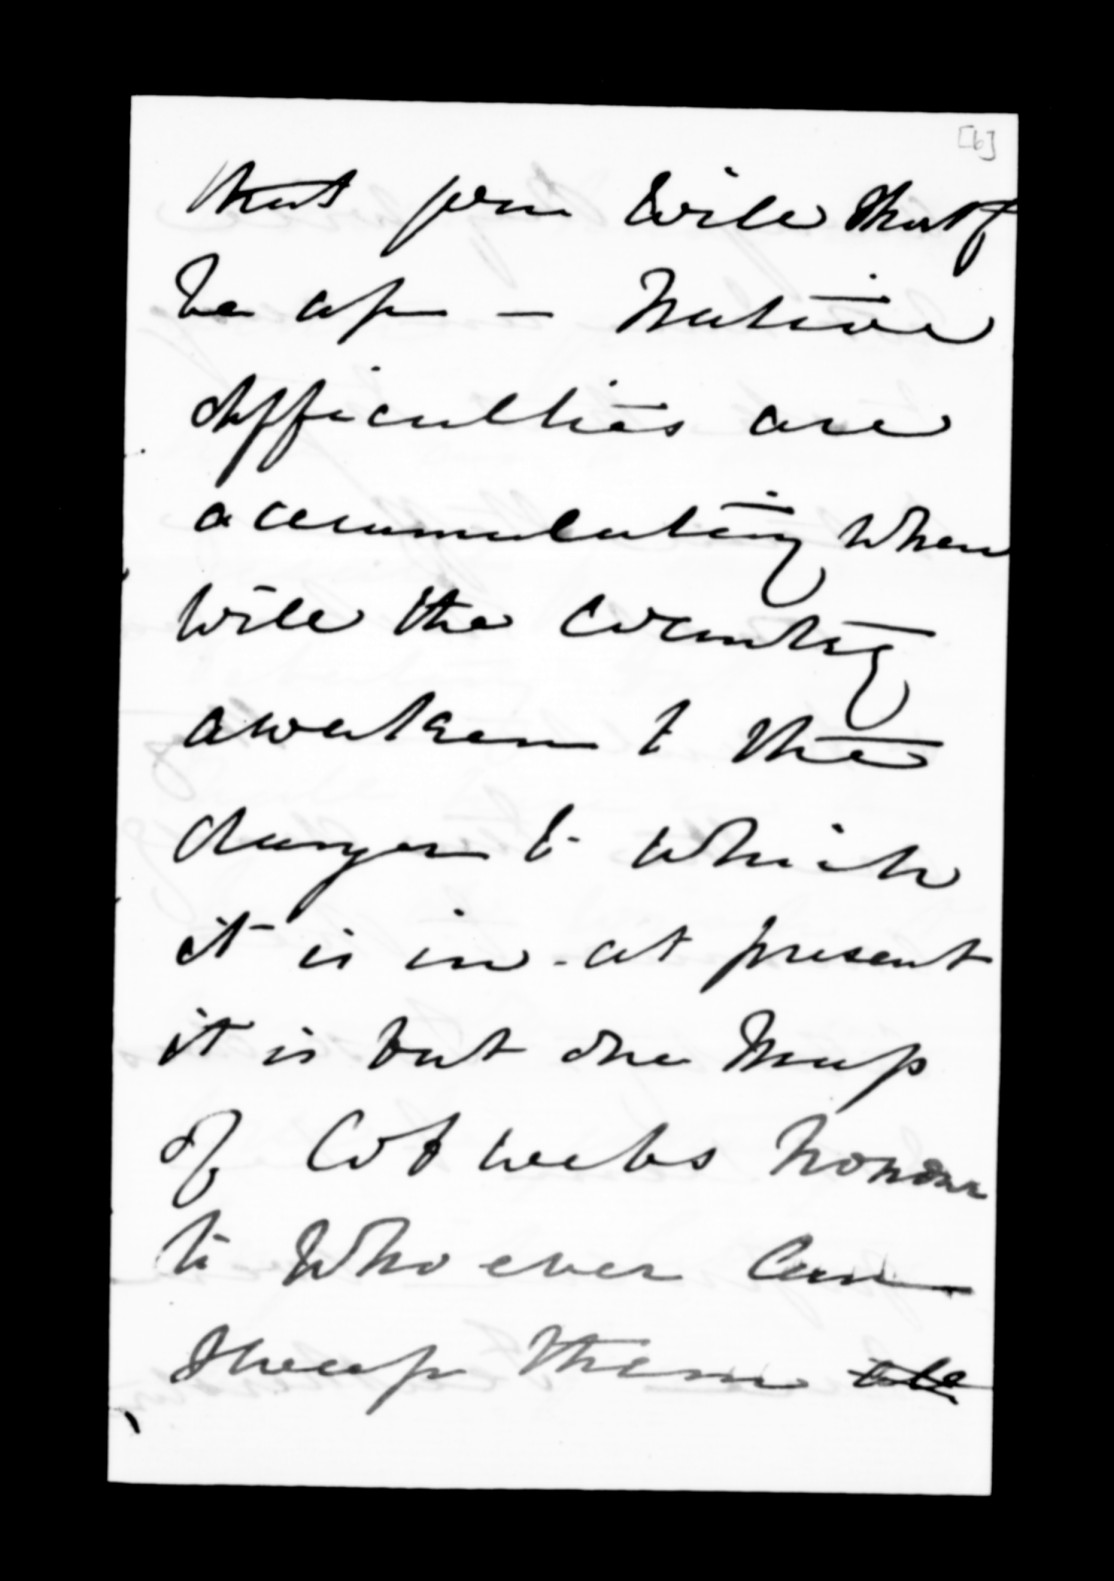 [6]
that you will shortly
be up — Native
difficulties are
accumulating when
will the Country
awaken to the
danger to which
it is in - at present
it is but one Map
of Cobwebs honour
to Whoever can
sweep them